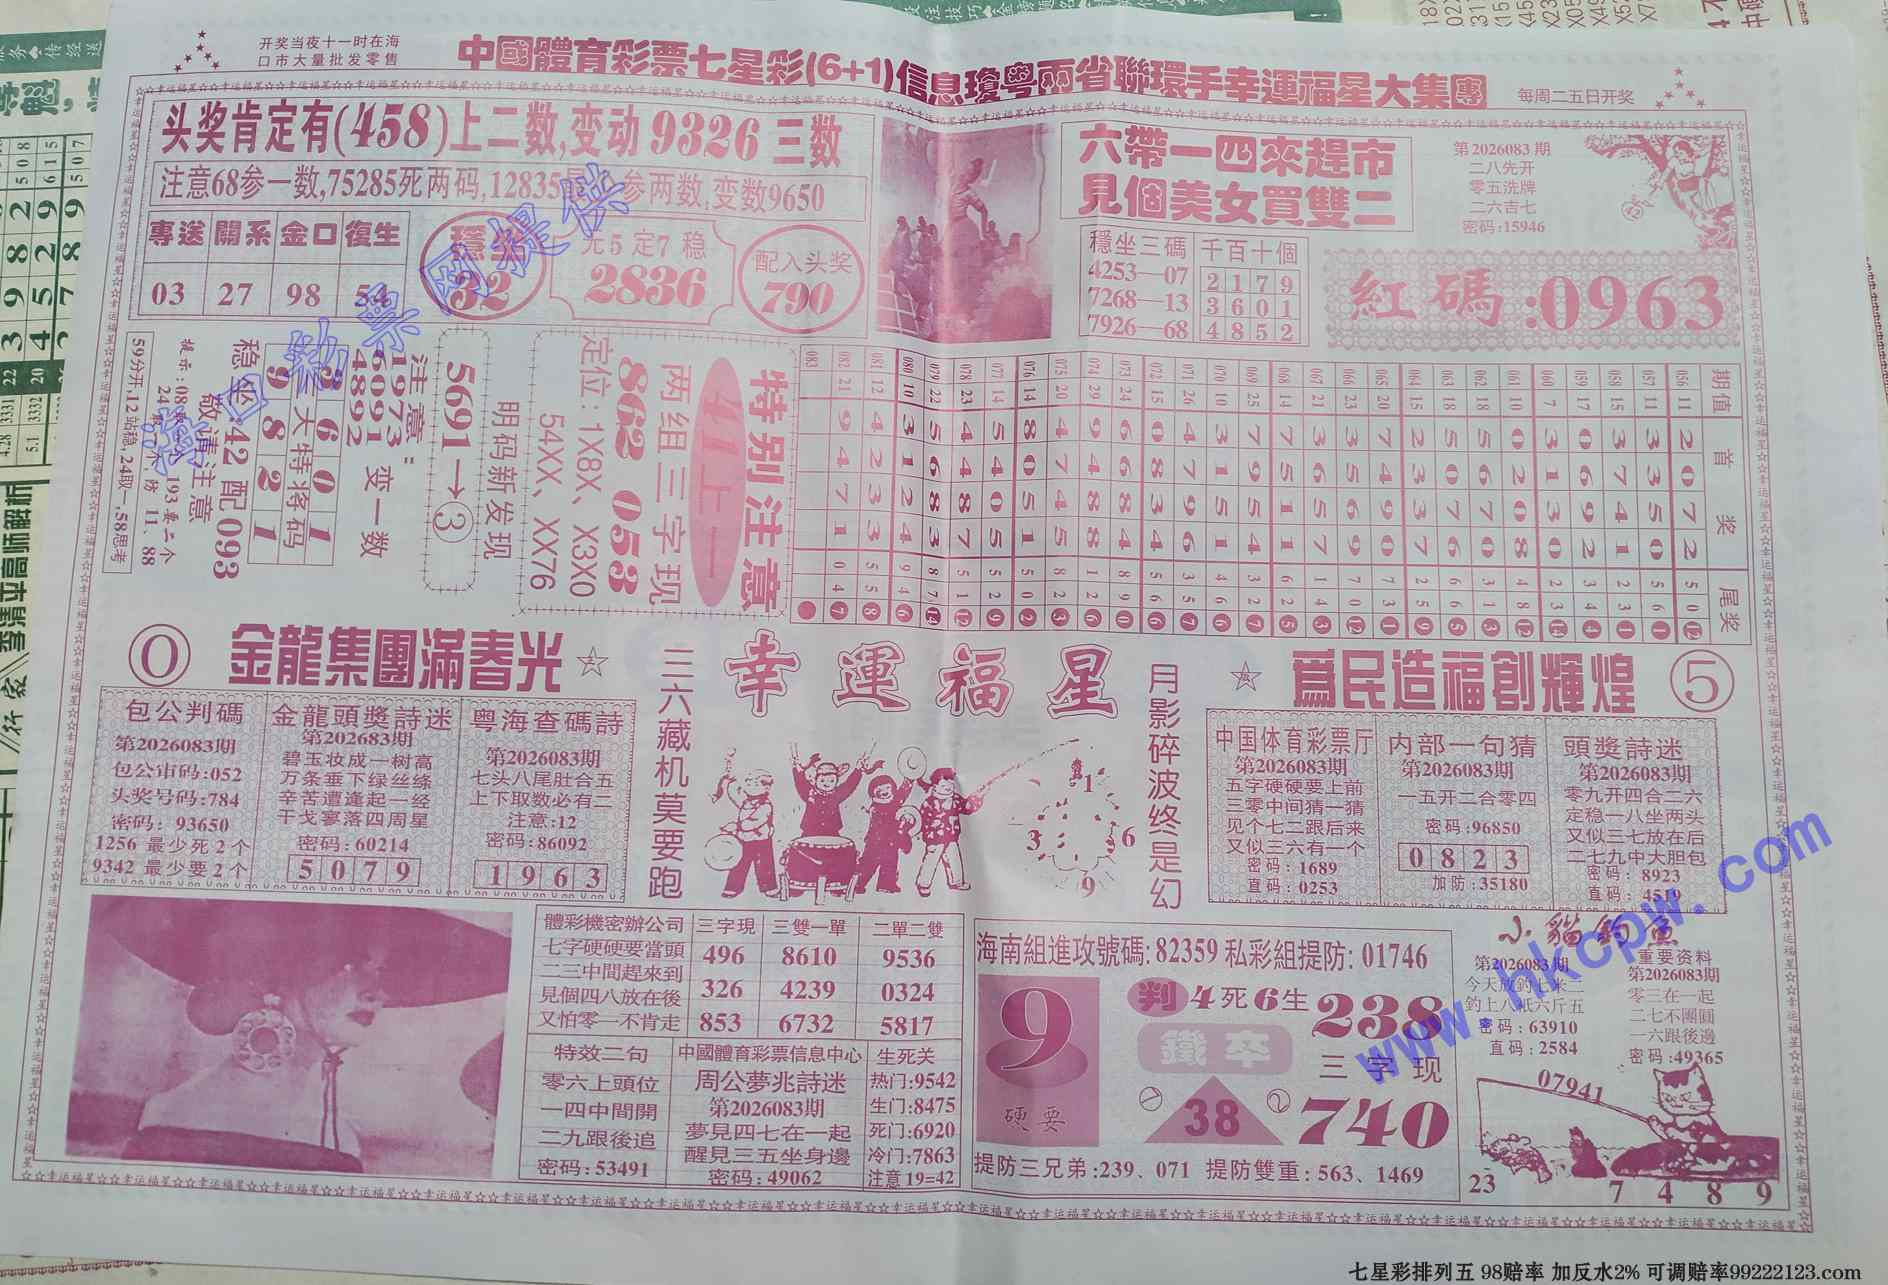 开奖当夜十一时在海
口市大量批发零售
中國體育彩票七星彩(6+1)信息瓊粤兩省聯環手幸運福星大集團
每周二五日开奖
头奖肯定有(458)上二数,变动9326三数
注意68参一数,75285死两码,12835
参两数,变数9650
專送 關系 金口 復生
03 27 98
32
5定7稳
2836
配入头奖
790
六帶一四來趕市
見個美女買雙二
第2026083期
二八先开
零五洗牌
二六吉七
密码:15946
穩坐三碼
4253—07
7268—13
7926—68
千百十個
2 1 7 9
3 6 0 1
4 8 5 2
紅碼:0963
59分开,12站稳,24取一,58思考
193要二个
防11、88
敬请注意
稳坐:42配093
3 6 0 1
大特将码
9 8 2 1
注意:
1973
6091
4892
变一数
5691→③
明码新发现
定位:1X8X、X3X0
54XX、XX76
862 053
两组三字现
41上一
特别注意
期值 首奖 尾奖
056 11 2 0 7 2 5 0 ⑫
057 11 3 3 5 0 5 6 ①
058 15 3 7 4 1 2 3 ①
059 17 0 6 9 2 1 3 ④
060 7 3 1 3 0 2 3 ⑭
061 10 0 2 0 8 4 8 ⑫
062 18 5 6 7 0 3 1 ③
063 18 5 0 7 6 6 6 ⑤
064 15 2 3 3 7 2 5 ⑨
065 20 7 4 9 0 7 3 ①
066 23 3 5 6 9 7 0 ⑫
067 21 3 6 5 7 1 4 ③
068 14 7 5 1 1 6 2 ⑤
069 25 7 9 5 4 3 2 ⑦
070 10 3 1 5 1 4 6 ⑥
071 26 4 7 9 6 3 5 ⑦
072 15 0 8 3 4 5 6 ⑥
073 24 6 6 8 4 8 9 ⓪
074 29 9 4 8 8 1 2 ⑥
075 20 4 7 4 5 8 2 ③
076 14 8 0 5 1 5 0 ②
077 14 5 4 0 5 5 2 ⑨
078 23 4 4 8 7 5 1 ⑫
079 22 5 6 8 3 8 7 ⑭
080 10 3 1 2 4 9 4 ⑥
081 12 4 2 3 3 5 5 ⑧
082 21 9 4 7 1 0 4 ⑦
083
0
金龍集團滿春光
三六藏机莫要跑
幸運福星
月影碎波终是幻
爲民造福創輝煌
5
包公判碼
第2026083期
包公审码:052
头奖号码:784
密码: 93650
1256 最少死2个
9342 最少要2个
金龍頭獎詩迷
第202683期
碧玉妆成一树高
万条垂下绿丝绦
辛苦遭逢起一经
干戈寥落四周星
密码:60214
5 0 7 9
粤海查碼詩
第2026083期
七头八尾肚合五
上下取数必有二
注意:12
密码:86092
1 9 6 3
1
3
6
9
中国体育彩票厅
第2026083期
五字硬硬要上前
三零中间猜一猜
见个七二跟后来
又似三六有一个
密码:1689
直码:0253
内部一句猜
第2026083期
一五开二合零四
密码:96850
0 8 2 3
加防:35180
頭獎詩迷
第2026083期
零九开四合二六
定稳一八坐两头
又似三七放在后
二七九中大胆包
密码: 8923
直码: 4519
體彩機密辦公司 三字現 三雙一單 二單二雙
七字硬硬要當頭 496 8610 9536
二三中間趕來到 326 4239 0324
見個四八放在後 853 6732 5817
又怕零一不肯走
特效二句
零六上頭位
一四中間開
二九跟後追
密码:53491
中國體育彩票信息中心
周公夢兆詩迷
第2026083期
夢見四七在一起
醒見三五坐身邊
密码:49062
生死关
热门:9542
生门:8475
死门:6920
冷门:7863
注意19=42
海南組進攻號碼:82359 私彩組提防:01746
9
硬要
判4死6生
鐵卒
38
238
三字现
740
提防三兄弟:239、071 提防雙重:563、1469
小貓釣魚
第2026083期
今天放釣七来二
釣上八祗六斤五
密码: 63910
直码: 2584
重要资料
第2026083期
零三在一起
二七不團圓
一六跟後邊
密码:49365
07941
23
7 4 8 9
www.hkcpw.com
七星彩排列五 98赔率 加反水2% 可调赔率99222123.com